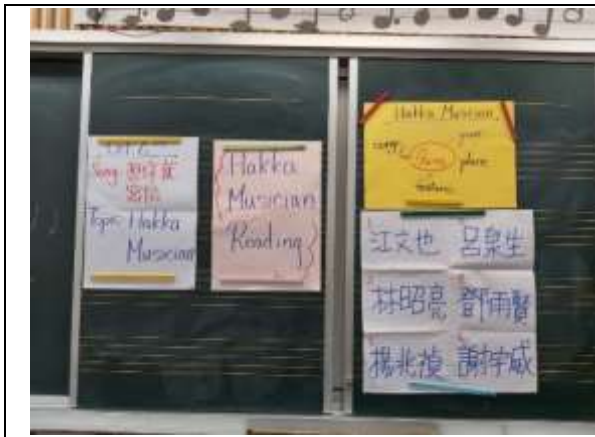 Song:
Topic: Hakka
Musician
Hakka
Musician
Reading
Hakka Musician
song
year
place
江文也 呂泉生
林昭亮 鄧雨賢
楊兆禎 謝宇威